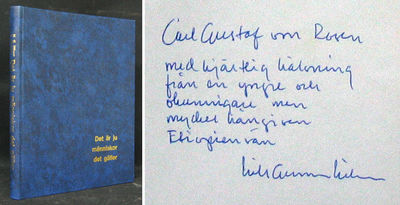 Det är ju
människor
det gäller
Carl Gustaf von Rosen
med hjärtlig hälsning
från en yngre och
okunnigare men
mycket hängiven
Etiopienvän